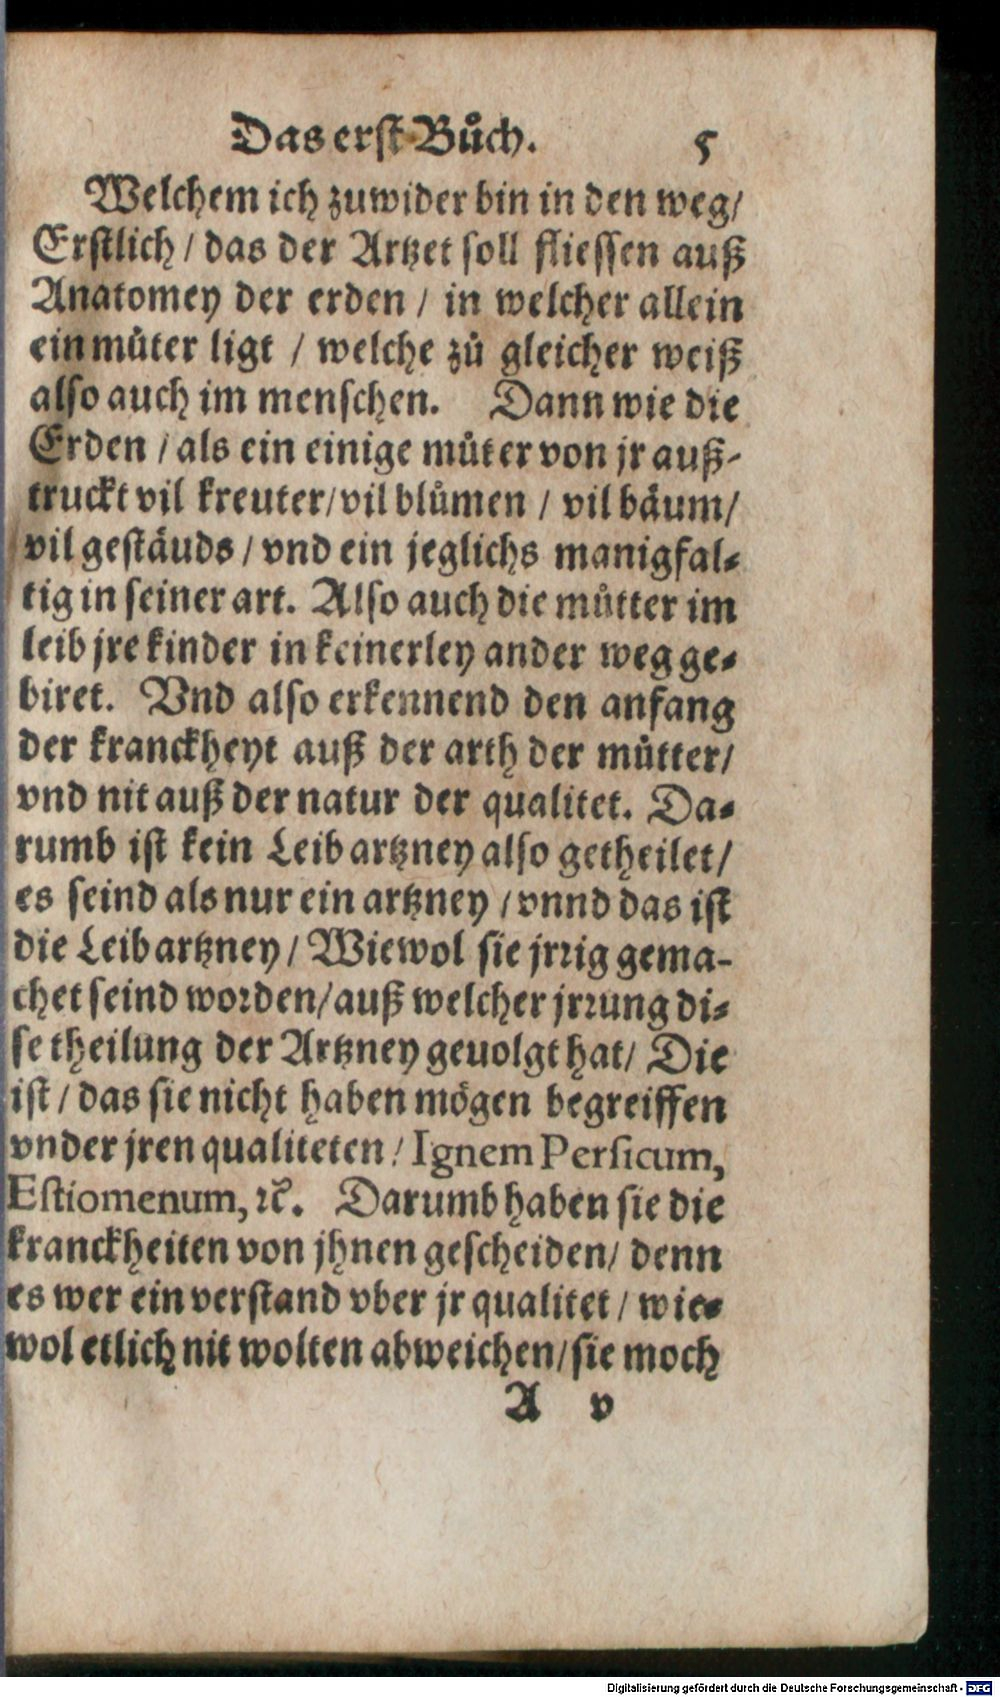 Das erst Bůch. 5
Welchem ich zuwider bin in den weg/
Erstlich / das der Artzet soll fliessen auß
Anatomey der erden / in welcher allein
ein můter ligt / welche zů gleicher weiß
also auch im menschen. Dann wie die
Erden / als ein einige můter von jr auß-
truckt vil kreuter/vil blůmen / vil bäum/
vil gestäuds / vnd ein jeglichs manigfal-
tig in seiner art. Also auch die můtter im
leib jre kinder in keinerley ander weg ge-
biret. Vnd also erkennend den anfang
der kranckheyt auß der arth der můtter/
vnd nit auß der natur der qualitet. Da-
rumb ist kein Leibartzney also getheilet/
es seind als nur ein artzney / vnnd das ist
die Leibartzney / Wiewol sie jrrig gema-
chet seind worden/auß welcher jrrung di-
se theilung der Artzney geuolgt hat/ Die
ist / das sie nicht haben mögen begreiffen
vnder jren qualiteten / Ignem Persicum,
Estiomenum, ꝛc̃. Darumb haben sie die
kranckheiten von jhnen gescheiden/ denn
es wer ein verstand vber jr qualitet / wie-
wol etlich nit wolten abweichen/sie moch
A v
Digitalisierung gefördert durch die Deutsche Forschungsgemeinschaft - DFG